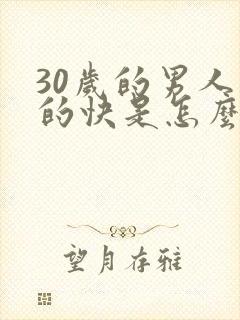 30歲的男人
的快是怎麼
望月存雅